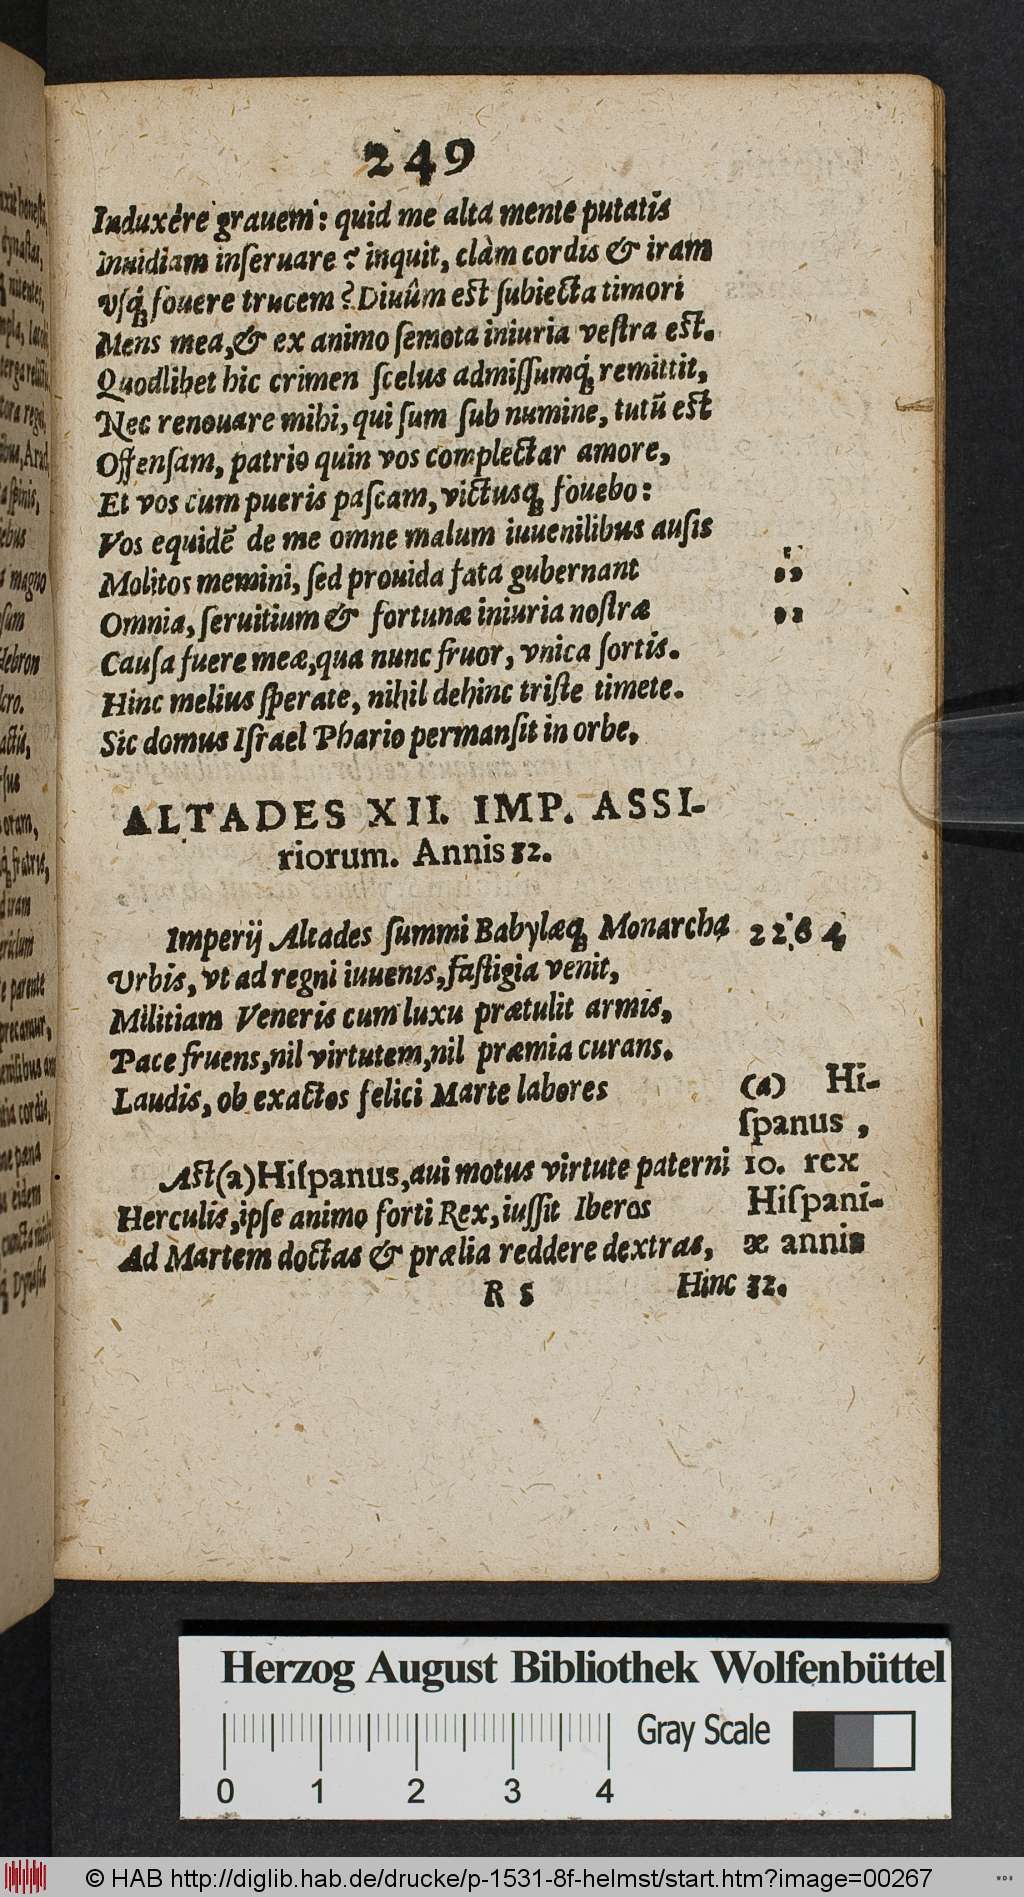 249
Induxêre grauem: quid me alta mente putatis
inuidiam inseruare? inquit, clàm cordis & iram
vsq́; fouere trucem? Diuûm est subiecta timori
Mens mea, & ex animo semota iniuria vestra est.
Quodlibet hic crimen scelus admissumq́; remittit,
Nec renouare mihi, qui sum sub numine, tutū est
Offensam, patrio quin vos complectar amore,
Et vos cum pueris pascam, victusq; fouebo:
Vos equidē de me omne malum iuuenilibus ausis
Molitos memini, sed prouida fata gubernant
Omnia, seruitium & fortunæ iniuria nostræ
Causa fuere meæ, qua nunc fruor, vnica sortis.
Hinc melius sperate, nihil dehinc triste timete.
Sic domus Israel Phario permansit in orbe,
ALTADES XII. IMP. ASSI-
riorum. Annis 32.
Imperij Altades summi Babylæq; Monarcha 2264
Vrbis, vt ad regni iuuenis, fastigia venit,
Militiam Veneris cum luxu prætulit armis,
Pace fruens, nil virtutem, nil præmia curans.
Laudis, ob exactos felici Marte labores
Ast (a) Hispanus, aui motus virtute paterni
Herculis, ipse animo forti Rex, iussit Iberos
Ad Martem doctas & prælia reddere dextras,
(a) Hi-
spanus,
10. rex
Hispani-
æ annis
32.
R 5
Hinc
Herzog August Bibliothek Wolfenbüttel
0 1 2 3 4
Gray Scale
© HAB http://diglib.hab.de/drucke/p-1531-8f-helmst/start.htm?image=00267